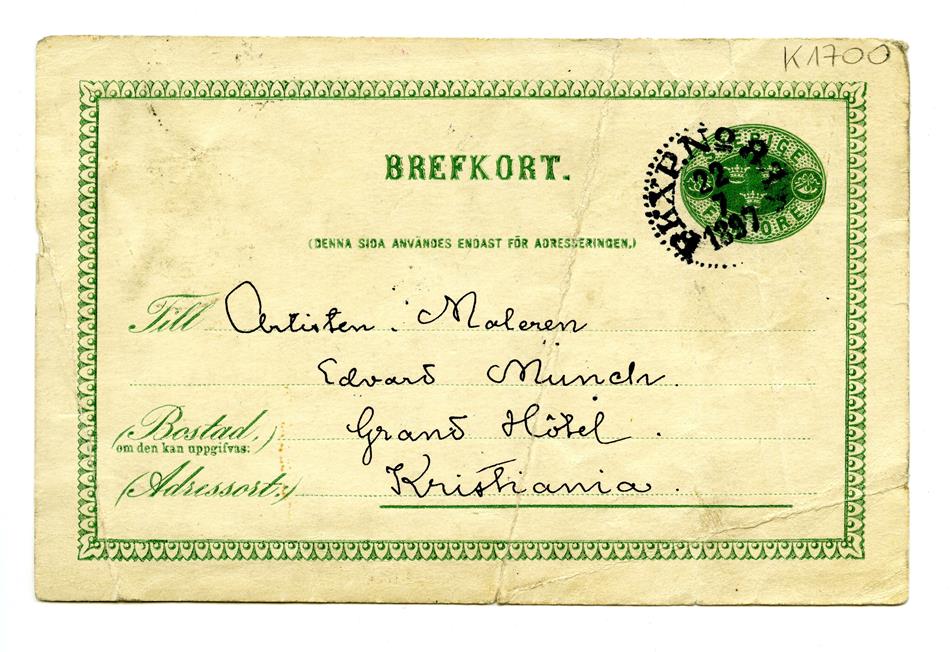 K1700
BREFKORT.
SVERIGE
ÖRE
PKXP No
22
7
1897
(DENNA SIDA ANVÄNDES ENDAST FÖR ADRESSERINGEN.)
Till Artisten. Maleren
Edvard Münch.
(Bostad,) Grand Hôtel.
om den kan uppgifvas:
(Adressort:) Kristiania.